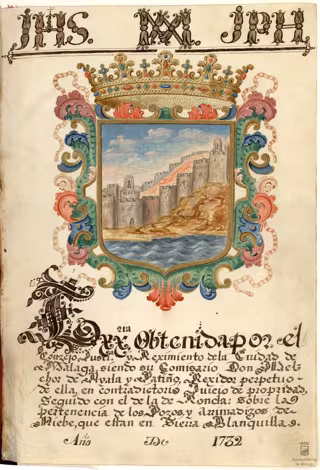 JHS. MA JPH.
Exx.ria Obtenida por el
Conzejo, Justt.ª y Reximiento dela Ciudad de
Malaga, siendo su Comisario Don Melchor
chor de Ayala y Patiño, Rexidor perpetuo
de ella, en contradictorio Juicio de propriedad,
Seguido con el de la de Ronda: sobre las
pertenencia de los Pozos, y animadigos de
Niebe, que estan en Sierra Blanquilla.
Año De 1732